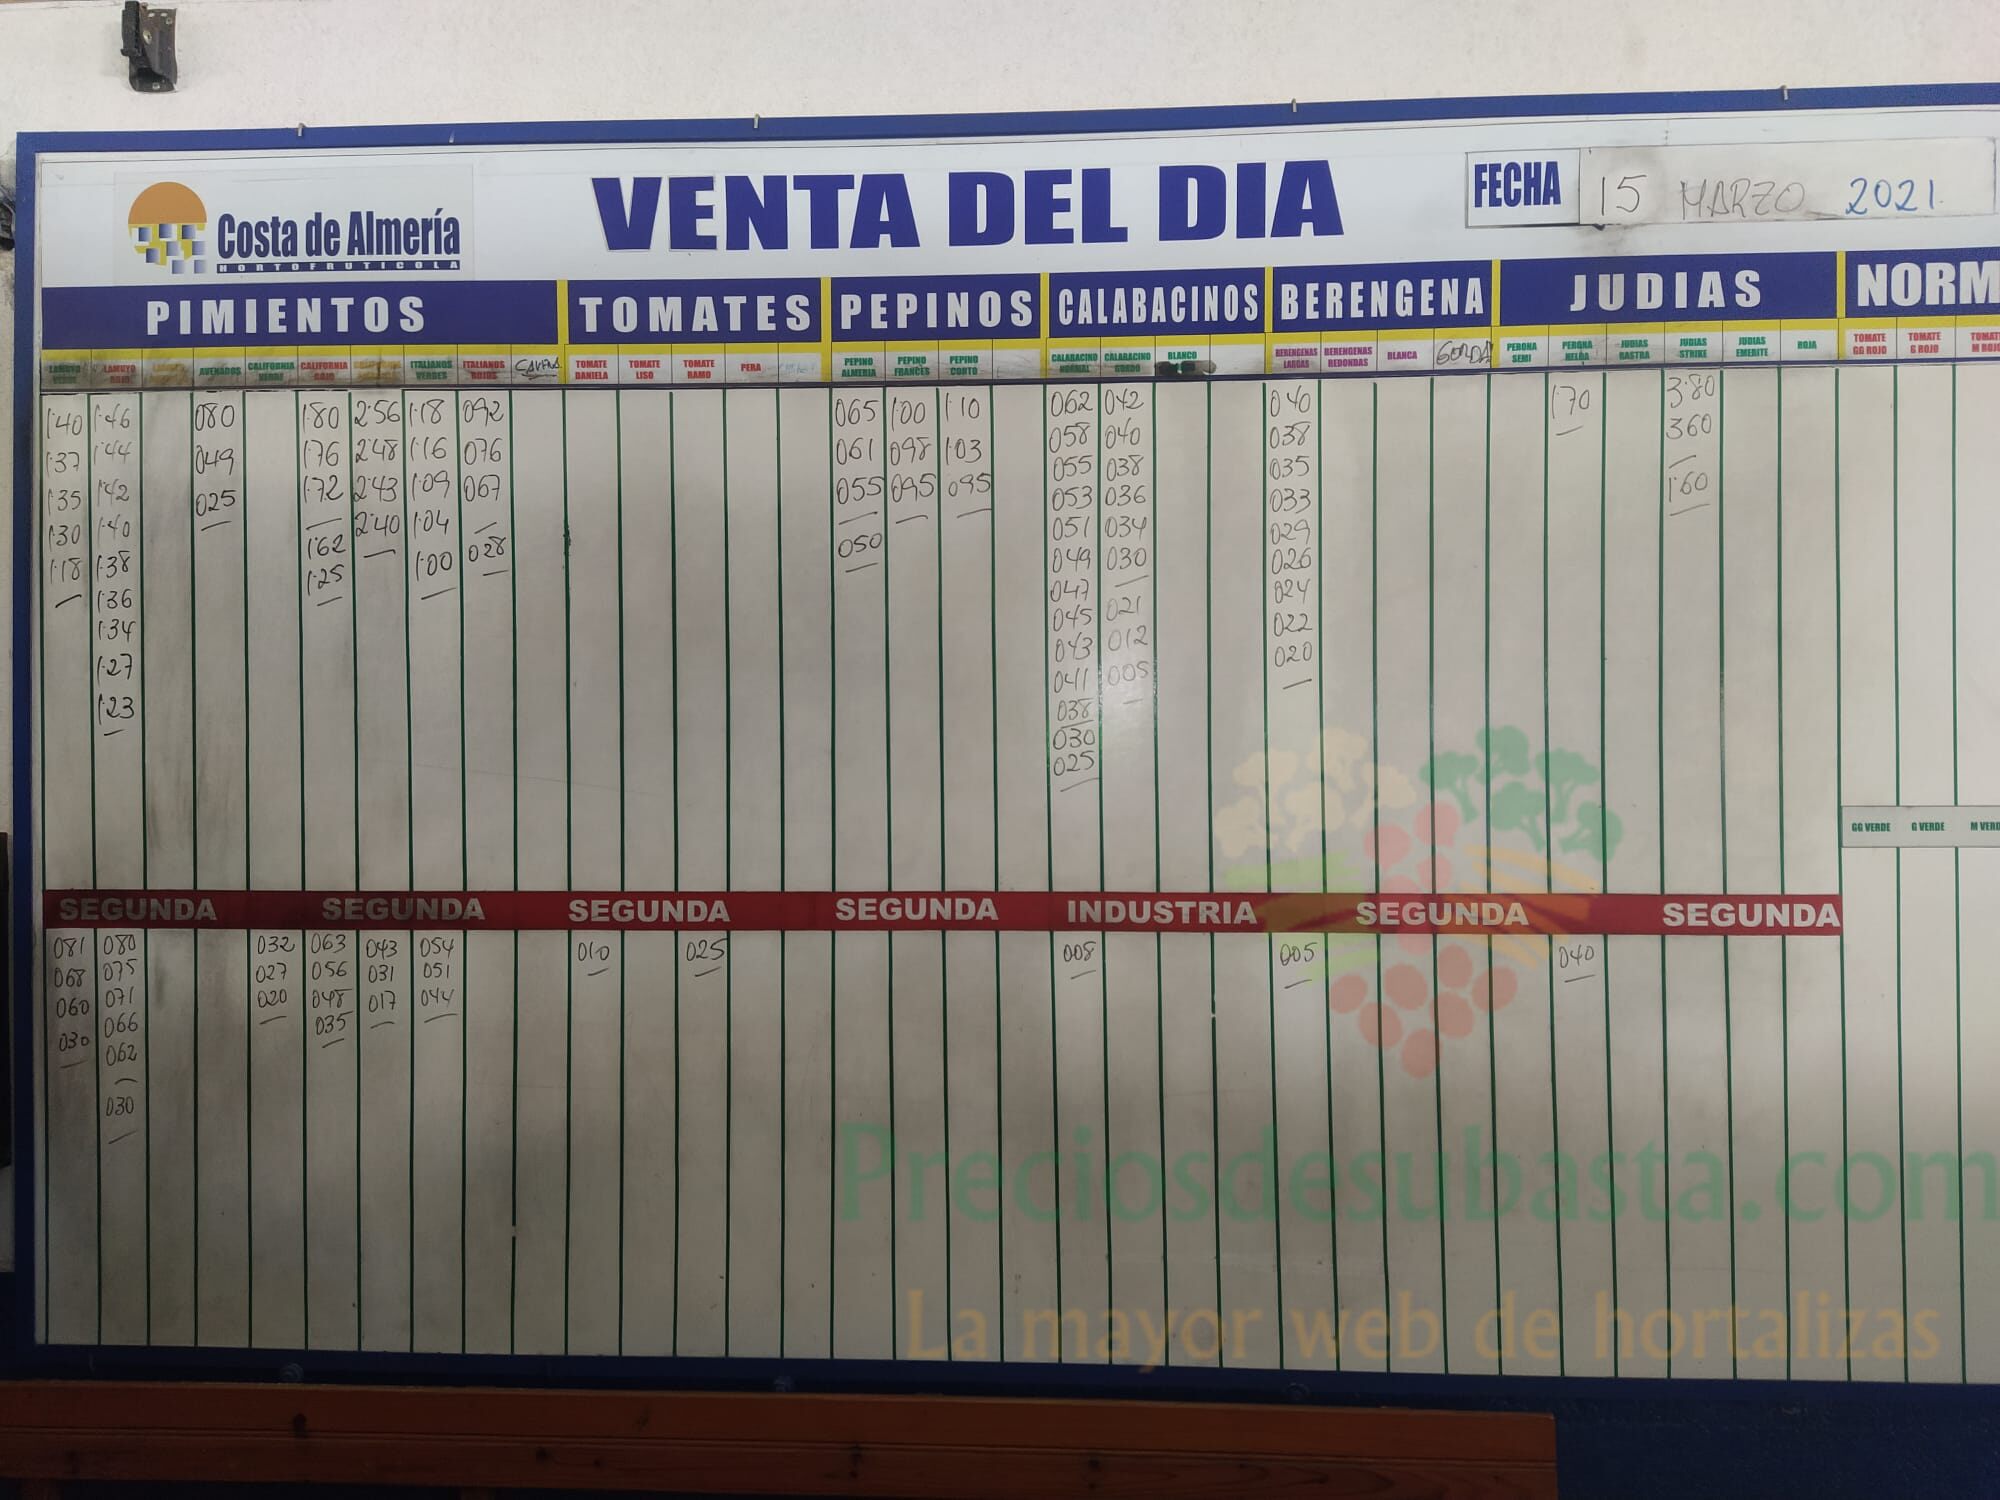 Costa de Almería
HORTOFRUTICOLA
VENTA DEL DIA
FECHA 15 MARZO 2021
PIMIENTOS TOMATES PEPINOS CALABACINOS BERENGENA JUDIAS NORM
LAMUYO VERDE
LAMUYO ROJO
AVENADOS
CALIFORNIA VERDE
CALIFORNIA ROJO
ITALIANOS VERDES
ITALIANOS ROJOS
TOMATE DANIELA
TOMATE LISO
TOMATE RAMO
PERA
PEPINO ALMERIA
PEPINO FRANCES
PEPINO CONTO
CALABACINO NORMAL
CALABACINO GORDO
BLANCO
BERENGENAS LARGAS
BERENGENAS REDONDAS
BLANCA
GORDA
PERONA SEMI
PERONA HELDA
JUDIAS RASTRA
JUDIAS STRIKE
JUDIAS EMERITE
ROJA
TOMATE GG ROJO
TOMATE G ROJO
TOMAT M ROJ
1'40 1'46 080 1'80 2'56 1'18 092 065 1'00 1'10 062 042 040 1'70 3'80
1'37 1'44 049 1'76 2'48 1'16 076 061 098 1'03 058 040 038 360
1'35 1'42 025 1'72 2'43 1'09 067 055 095 095 055 038 035 1'60
1'30 1'40 1'62 2'40 1'04 028 050 053 036 033
1'18 1'38 1'25 1'00 051 034 029
1'36 049 030 026
1'34 047 021 024
1'27 045 012 022
1'23 043 005 020
041
038
030
025
GG VERDE G VERDE M VERD
SEGUNDA SEGUNDA SEGUNDA SEGUNDA INDUSTRIA SEGUNDA SEGUNDA
081 080 032 063 043 054 010 025 008 005 040
068 075 027 056 031 051
060 071 020 048 017 044
030 066 035
062
030
Preciosdesubasta.com
La mayor web de hortalizas